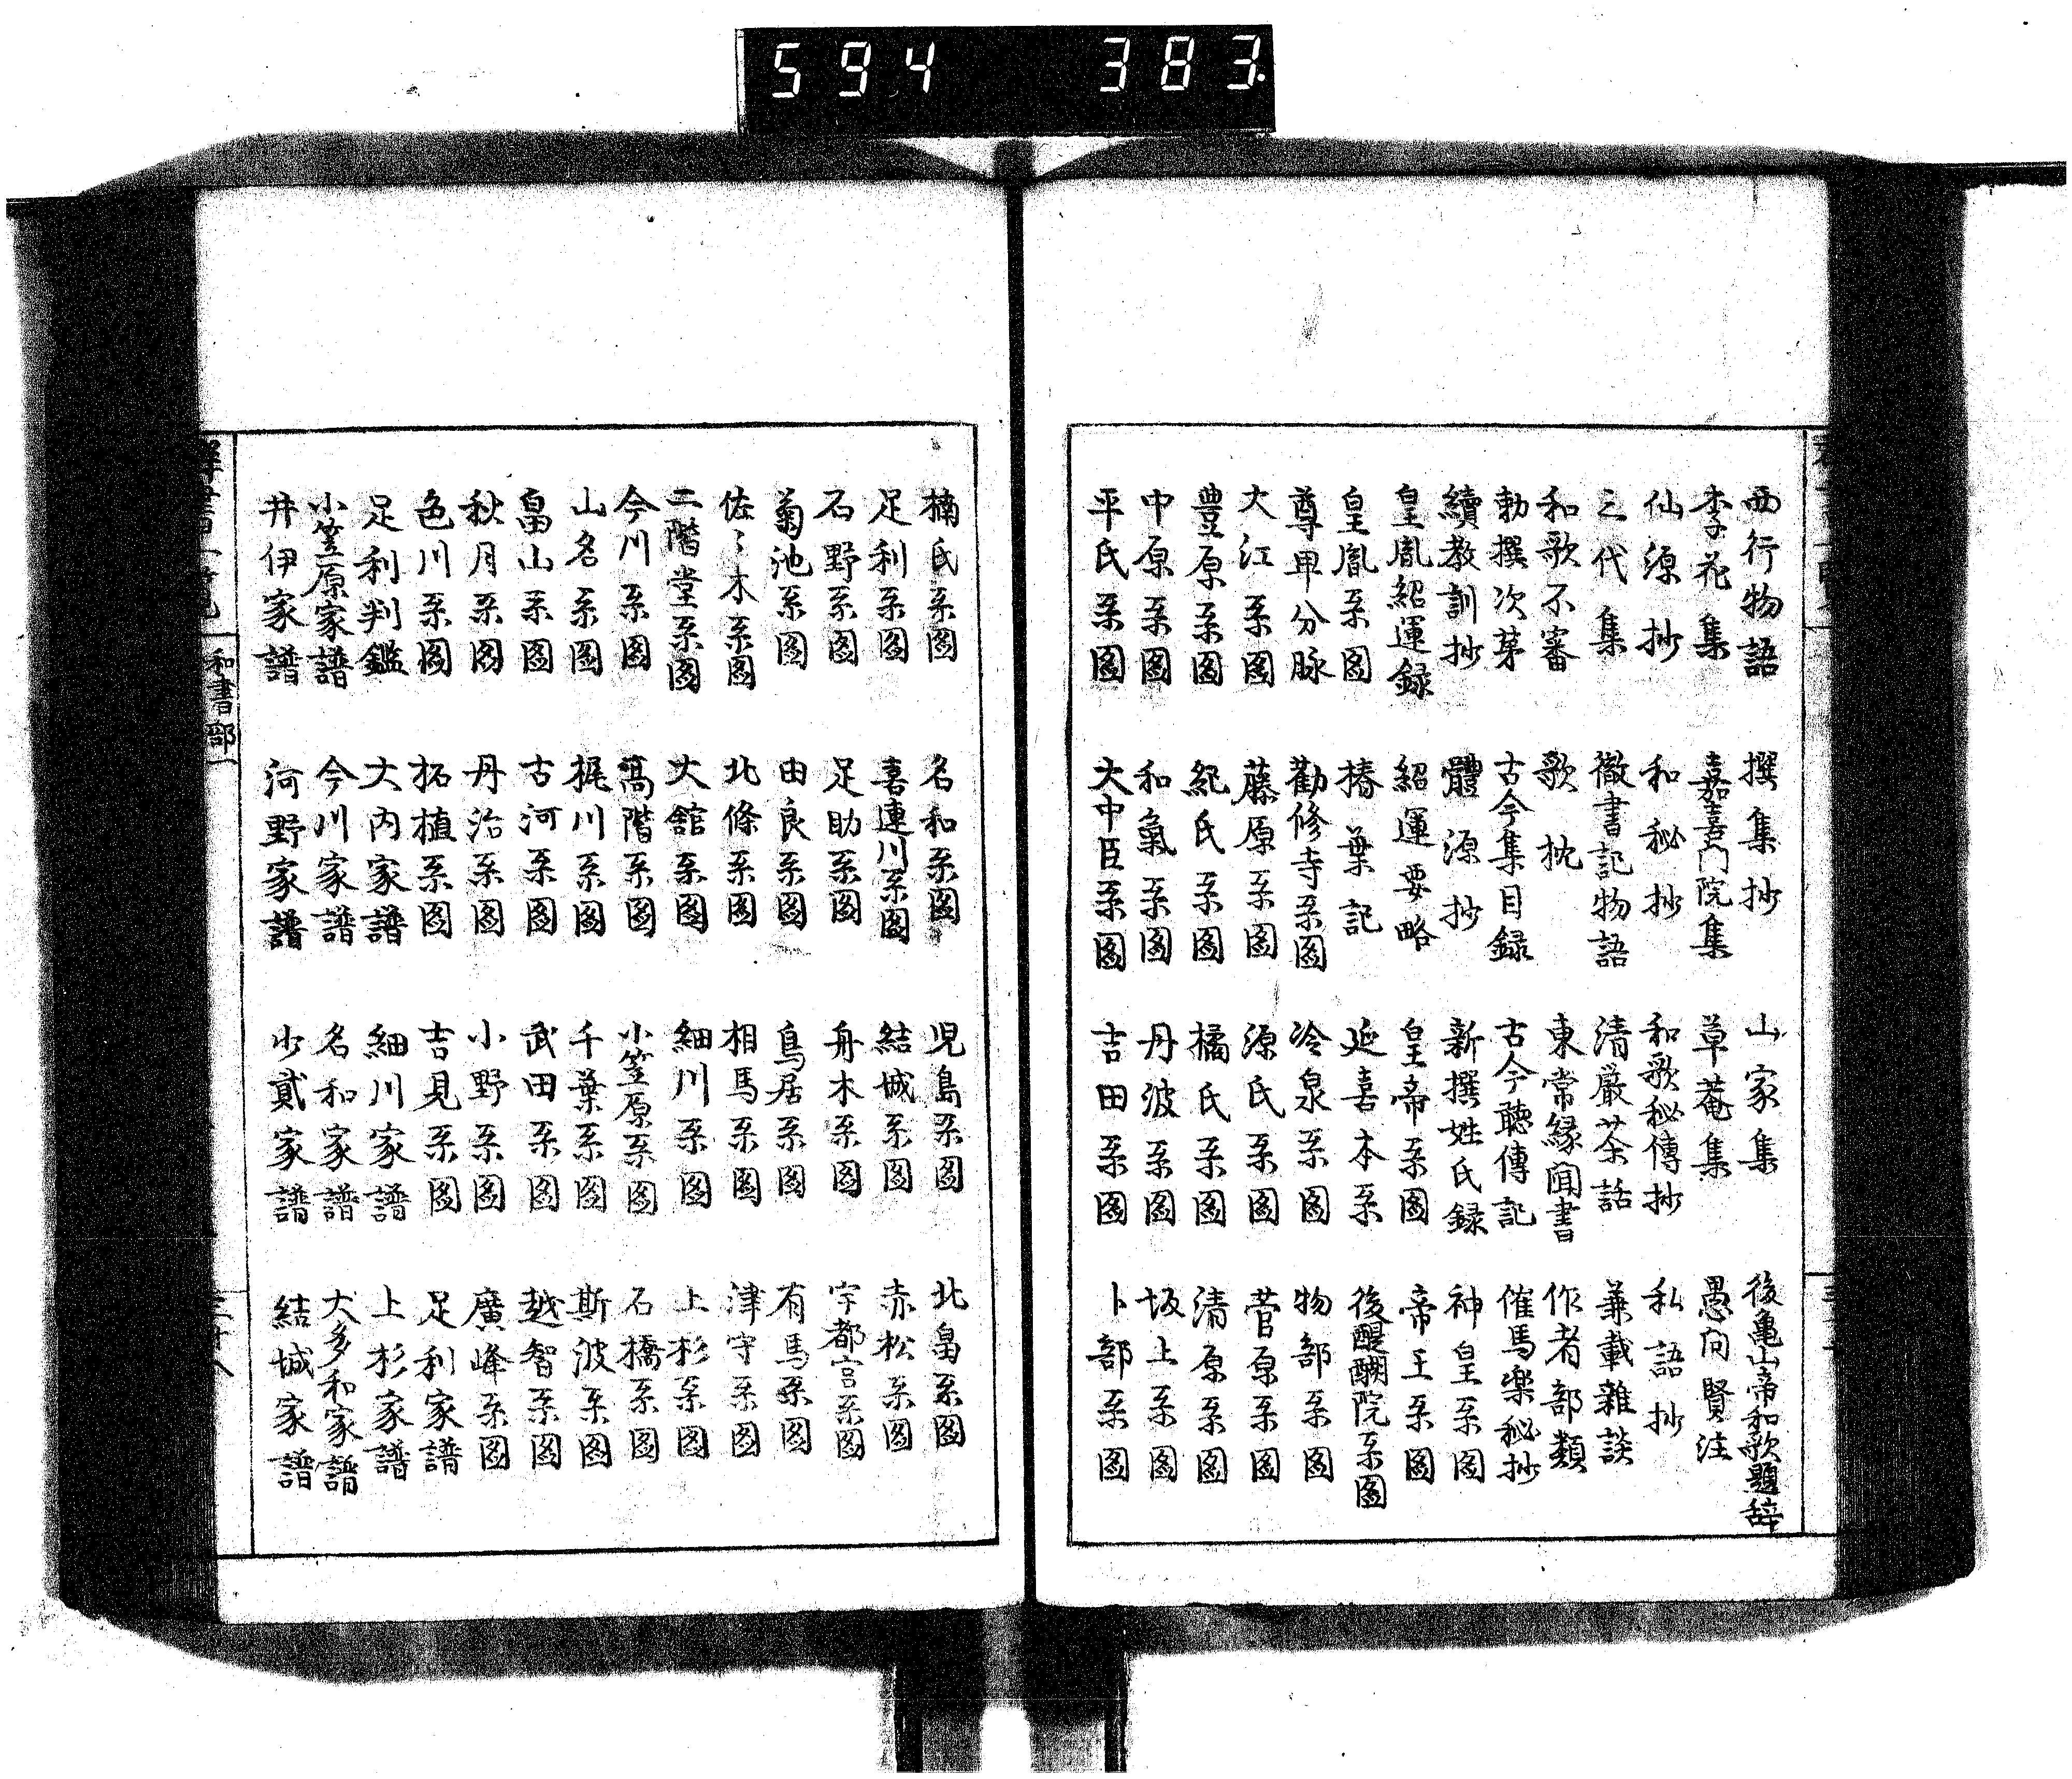 594 383.
西行物語 撰集抄 山家集 後亀山帝和歌題辞
李花集 嘉喜門院集 草菴集 愚問賢注
仙源抄 和秘抄 和歌秘傳抄 私語抄
三代集 徹書記物語 清嚴茶話 兼載雜談
和歌不審 歌枕 東常縁聞書 作者部類
勅撰次苐 古今集目録 古今聽傳記 催馬楽秘抄
續教訓抄 體源抄 新撰姓氏録 神皇系圖
皇胤紹運録 紹運要略 皇帝系圖 帝王系圖
皇胤系圖 椿葉記 延喜本系 後醍醐院系圖
尊卑分脉 勸修寺系圖 冷泉系圖 物部系圖
大江系圖 藤原系圖 源氏系圖 菅原系圖
豊原系圖 紀氏系圖 橘氏系圖 清原系圖
中原系圖 和氣系圖 丹波系圖 坂上系圖
平氏系圖 大中臣系圖 吉田系圖 卜部系圖
楠氏系圖 名和系圖 児島系圖 北畠系圖
足利系圖 喜連川系圖 結城系圖 赤松系圖
石野系圖 足助系圖 舟木系圖 宇都宮系圖
菊池系圖 由良系圖 鳥居系圖 有馬系圖
佐々木系圖 北條系圖 相馬系圖 津守系圖
二階堂系圖 大舘系圖 細川系圖 上杉系圖
今川系圖 高階系圖 小笠原系圖 石橋系圖
山名系圖 梶川系圖 千葉系圖 斯波系圖
畠山系圖 古河系圖 武田系圖 越智系圖
秋月系圖 丹治系圖 小野系圖 廣峰系圖
色川系圖 柘植系圖 吉見系圖 足利家譜
足利判鑑 大内家譜 細川家譜 上杉家譜
小笠原家譜 今川家譜 名和家譜 大多和家譜
井伊家譜 河野家譜 少貳家譜 結城家譜
和書部